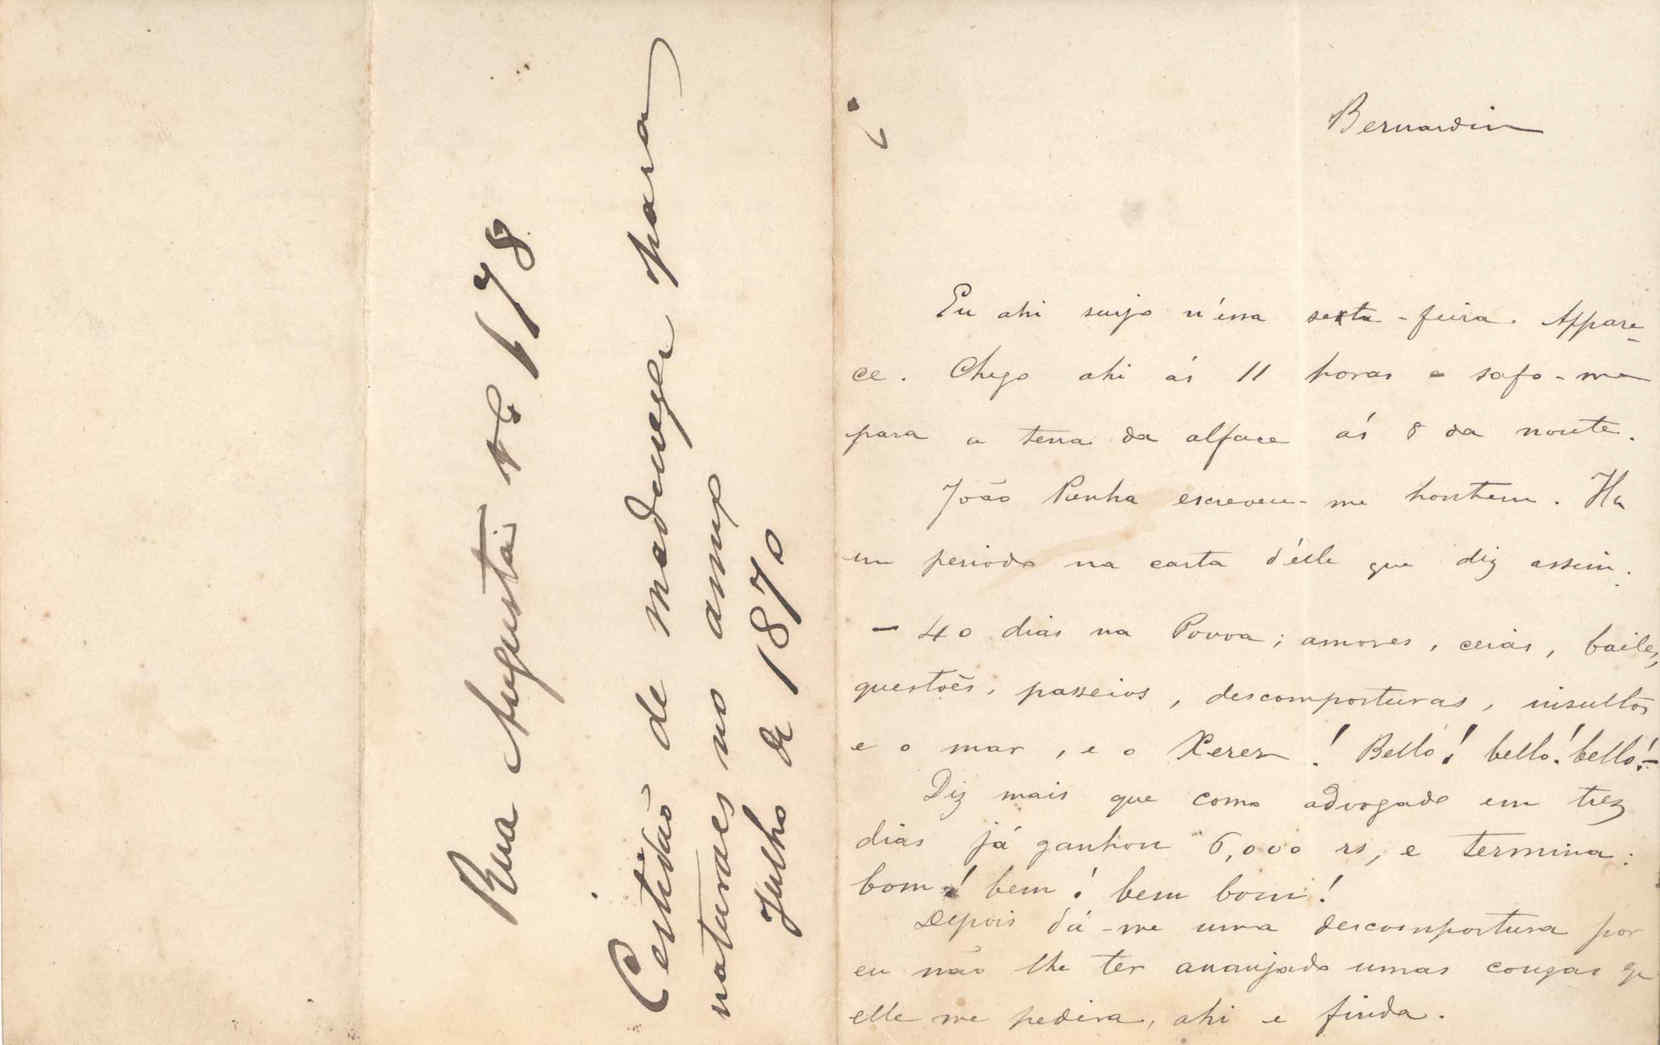 Rua Augusta nº 178
Certidão de madureza para
naturaes no anno
Julho de 1870
Bernardin
Eu ahi surjo n'essa sexta-feira. Appare-
ce. Chego ahi ás 11 horas e safo-me
para a terra da alface ás 8 da noute.
João Penha escreveu-me hontem. Ha
um periodo na carta d'elle que diz assim:
— 40 dias na Povoa; amores, ceias, bailes,
questões, passeios, descomposturas, insultos
e o mar, e o Xerez! Bello! bello! bello! —
Diz mais que como advogado em trez
dias já ganhou 6,000 rs, e termina:
bom! bem! bem bom!
Depois dá-me uma descompostura por
eu não lhe ter arranjado umas cousas q
elle me pedira, ahi e finda.